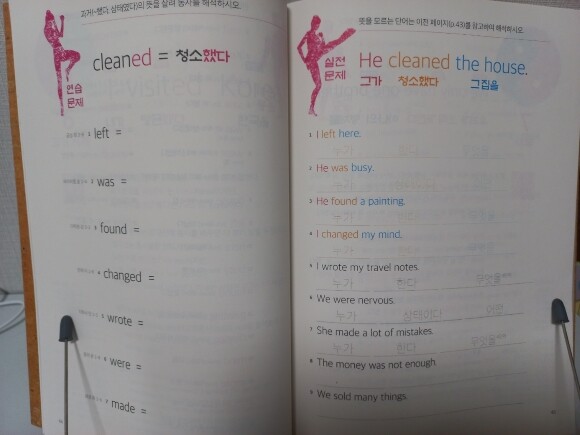 과거(~했다, 상태였다)의 뜻을 살려 동사를 해석하시오.
cleaned = 청소했다
연습
문제
1 left =
2 was =
3 found =
4 changed =
5 wrote =
6 were =
7 made =
뜻을 모르는 단어는 이전 페이지(p.43)를 참고하여 해석하시오.
실전
문제
He cleaned the house.
그가 청소했다 그 집을
1 I left here.
누가
2 He was busy.
3 He found a painting.
누가
4 I changed my mind.
5 I wrote my travel notes.
누가 한다 무엇을
6 We were nervous.
누가 상태이다 어떤
7 She made a lot of mistakes.
누가 한다 무엇을
8 The money was not enough.
9 We sold many things.